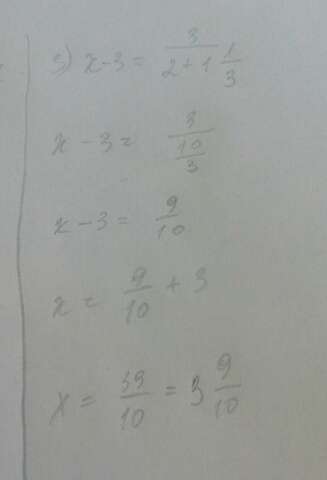 5) x-3 = 3/(2+1 1/3)
x - 3 = 3/(10/3)
x - 3 = 9/10
x = 9/10 + 3
x = 39/10 = 3 9/10